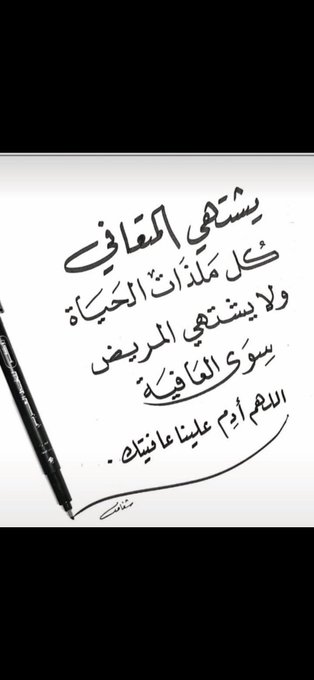 يشتهي المتعافي
كُل مَلذاتْ الحَيَاة
ولا يشتهي المريض
سِوَى العَافِيَة
اللهم أدِم علينا عافيتك.